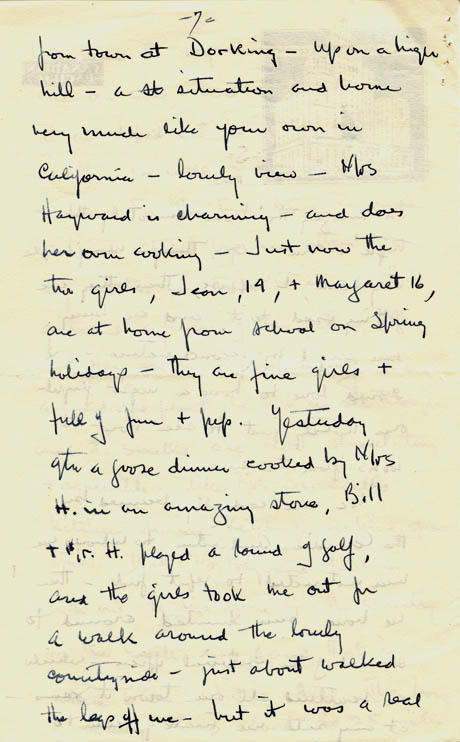 -7-
from town at Dorking - up on a high
hill - a st situation and home
very much like your own in
California - lovely view - Mrs
Hayward is charming - and does
her own cooking - Just now the
two girls, Jean, 19, + Margaret 16,
are at home from school on Spring
holidays - they are fine girls +
full of fun + pep. Yesterday
after a goose dinner cooked by Mrs
H. in an amazing stove, Bill
+ Mr. H. played a round of golf,
and the girls took me out for
a walk around the lovely
countryside - just about walked
the legs off me - but it was a real